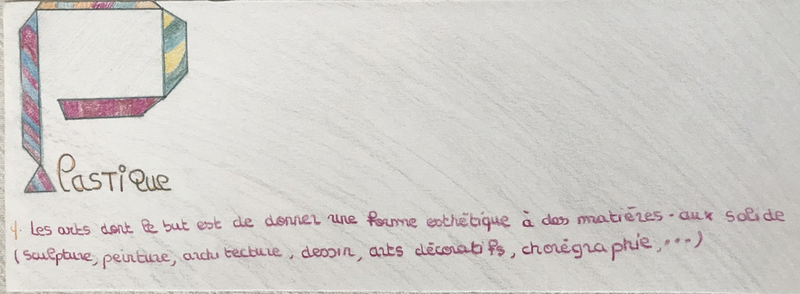 Plastique
4. Les arts dont le but est de donner une forme esthétique à des matières-aux solide
(sculpture, peinture, architecture, dessin, arts décoratifs, chorégraphie,...)